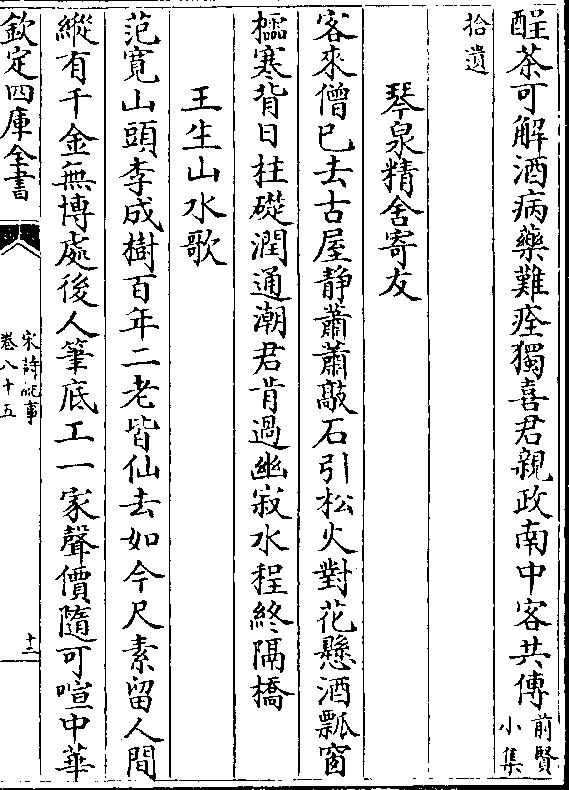 酲茶可解酒病藥難痊獨喜君親政南中客共傳前賢小集
拾遺
琴泉精舍寄友
客來僧已去古屋静蕭蕭敲石引松火對花懸酒瓢窗
櫺寒背日柱礎潤通潮君肯過幽寂水程終隔橋
王生山水歌
范寛山頭李成樹百年二老皆仙去如今尺素留人間
縱有千金無博處後人筆底工一家聲價隨可喧中華
欽定四庫全書
宋詩紀事
卷八十五
十二